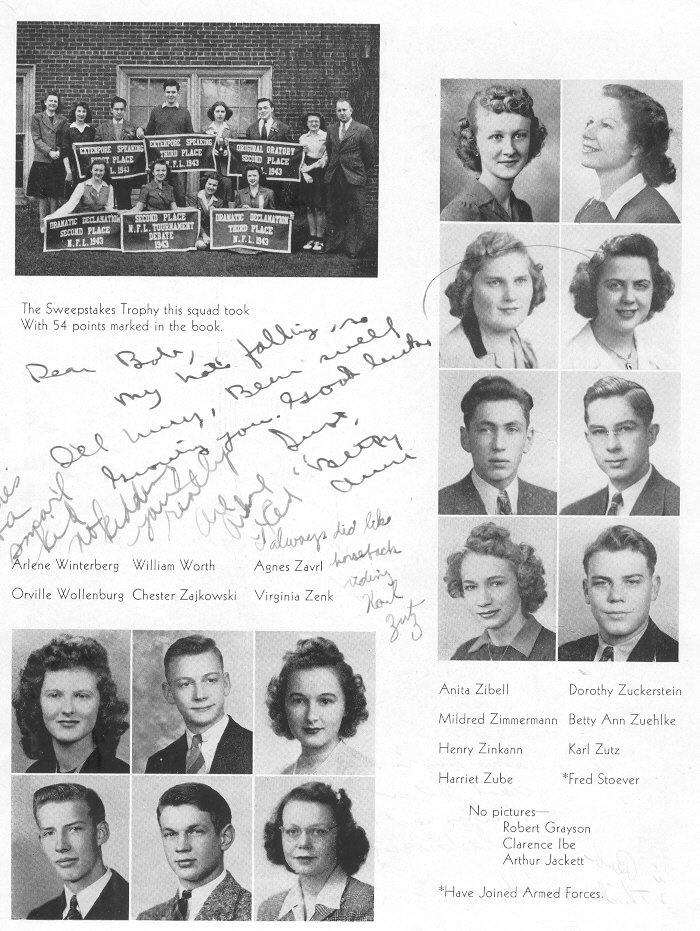 EXTEMPORE SPEAKING
FIRST PLACE
L. 1943
EXTEMPORE SPEAKING
THIRD PLACE
N.F.L. 1943
ORIGINAL ORATORY
SECOND PLACE
L. 1943
DRAMATIC DECLAMATION
SECOND PLACE
N.F.L. 1943
SECOND PLACE
N.F.L. TOURNAMENT
DEBATE
1943
DRAMATIC DECLAMATION
THIRD PLACE
N.F.L. 1943
The Sweepstakes Trophy this squad took
With 54 points marked in the book.
Dear Bob,
My hat's falling, so
I'll hurry, Been swell
knowing you. Good luck
Just,
"Betty
Ann
no kidding
I always did like
horseback
riding
Karl
Zutz
Arlene Winterberg William Worth Agnes Zavrl
Orville Wollenburg Chester Zajkowski Virginia Zenk
Anita Zibell Dorothy Zuckerstein
Mildred Zimmermann Betty Ann Zuehlke
Henry Zinkann Karl Zutz
Harriet Zube *Fred Stoever
No pictures—
Robert Grayson
Clarence Ibe
Arthur Jackett
*Have Joined Armed Forces.